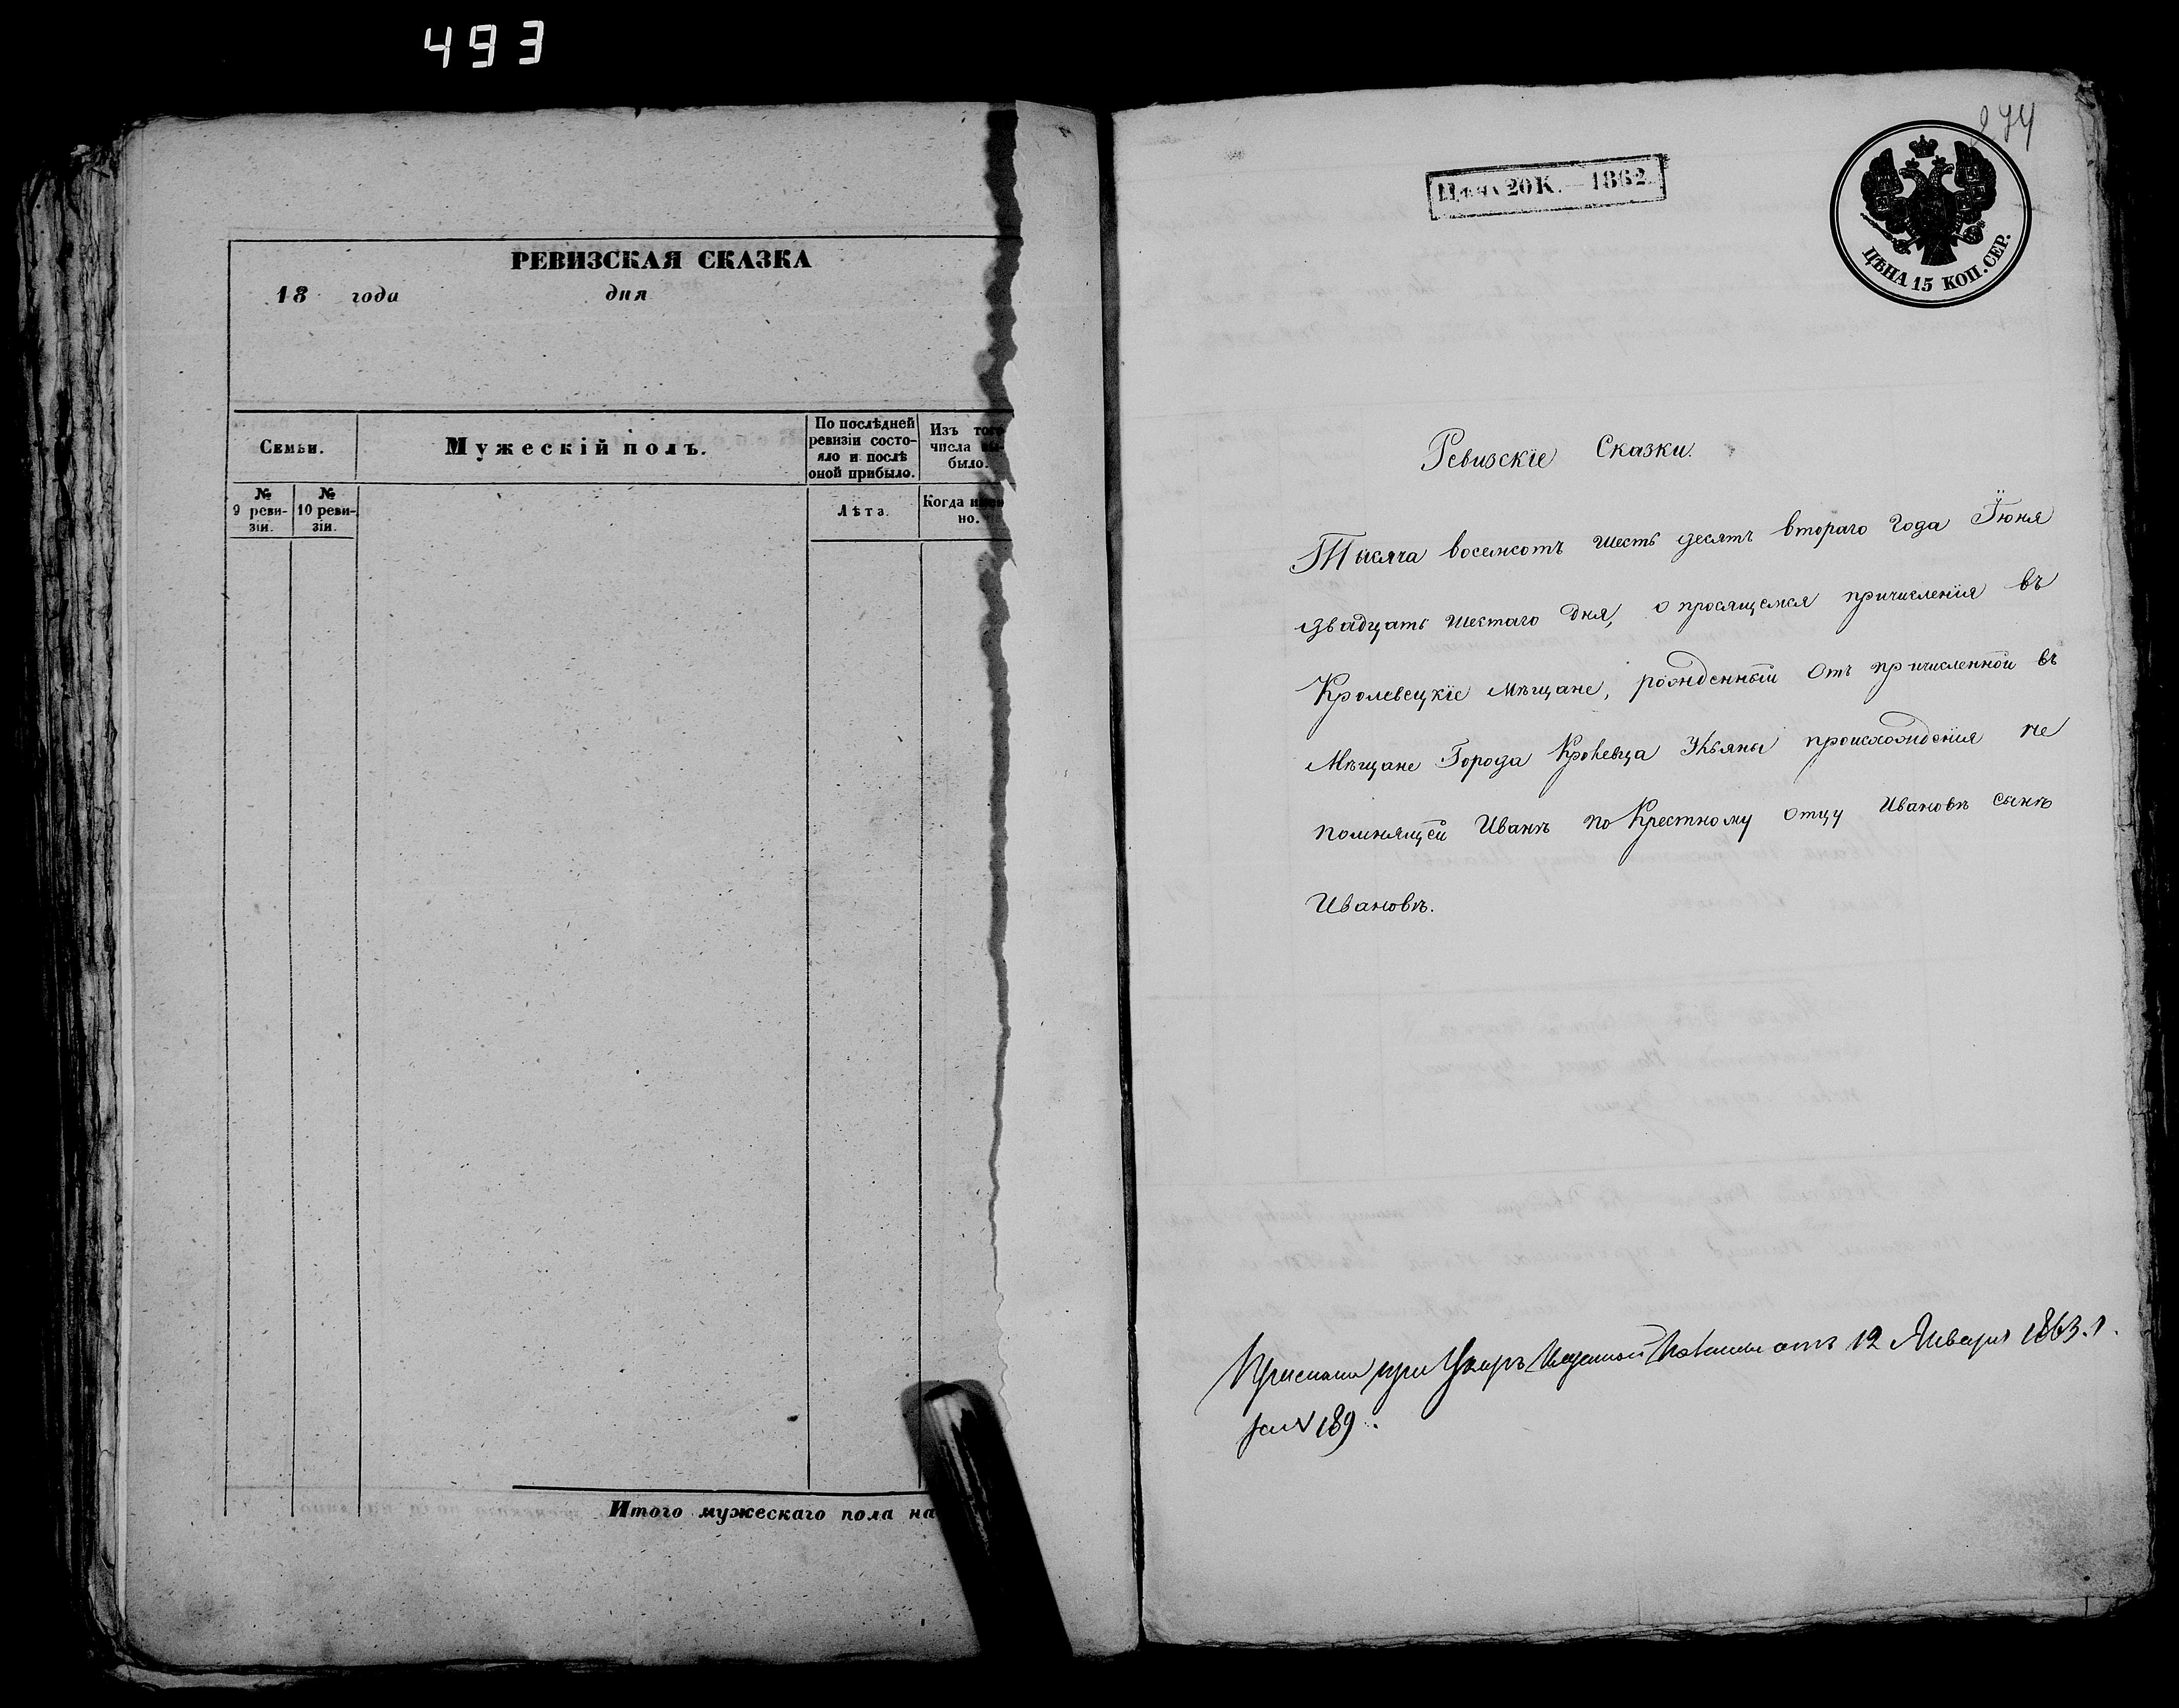 493
РЕВИЗСКАЯ СКАЗКА
18 года дня
Семьи.
Мужескій полъ.
По послѣдней
ревизіи состо-
яло и послѣ
оной прибыло.
Изъ того
числа вы-
было.
№
9 реви-
зіи.
№
10 реви-
зіи.
Лѣта.
Когда имен
но.
Итого мужескаго пола на
274
Цѣна 20 К. — 1862.
ЦѢНА 15 КОП. СЕР.
Ревизскіе Сказки.
Тысяча восемсотъ шесть десятъ втораго года Іюня
двадцать шестаго дня, о просящемся причисленія въ
Кролевецкіе Мѣщане, рожденный отъ причисленной въ
Мѣщане Города Кролевца Ульяны происхожденія не
помнящей Иванѣ по Крестному отцу Ивановѣ сынѣ
Ивановѣ.
при отъ 12 Января 1863. г.
за № 189.